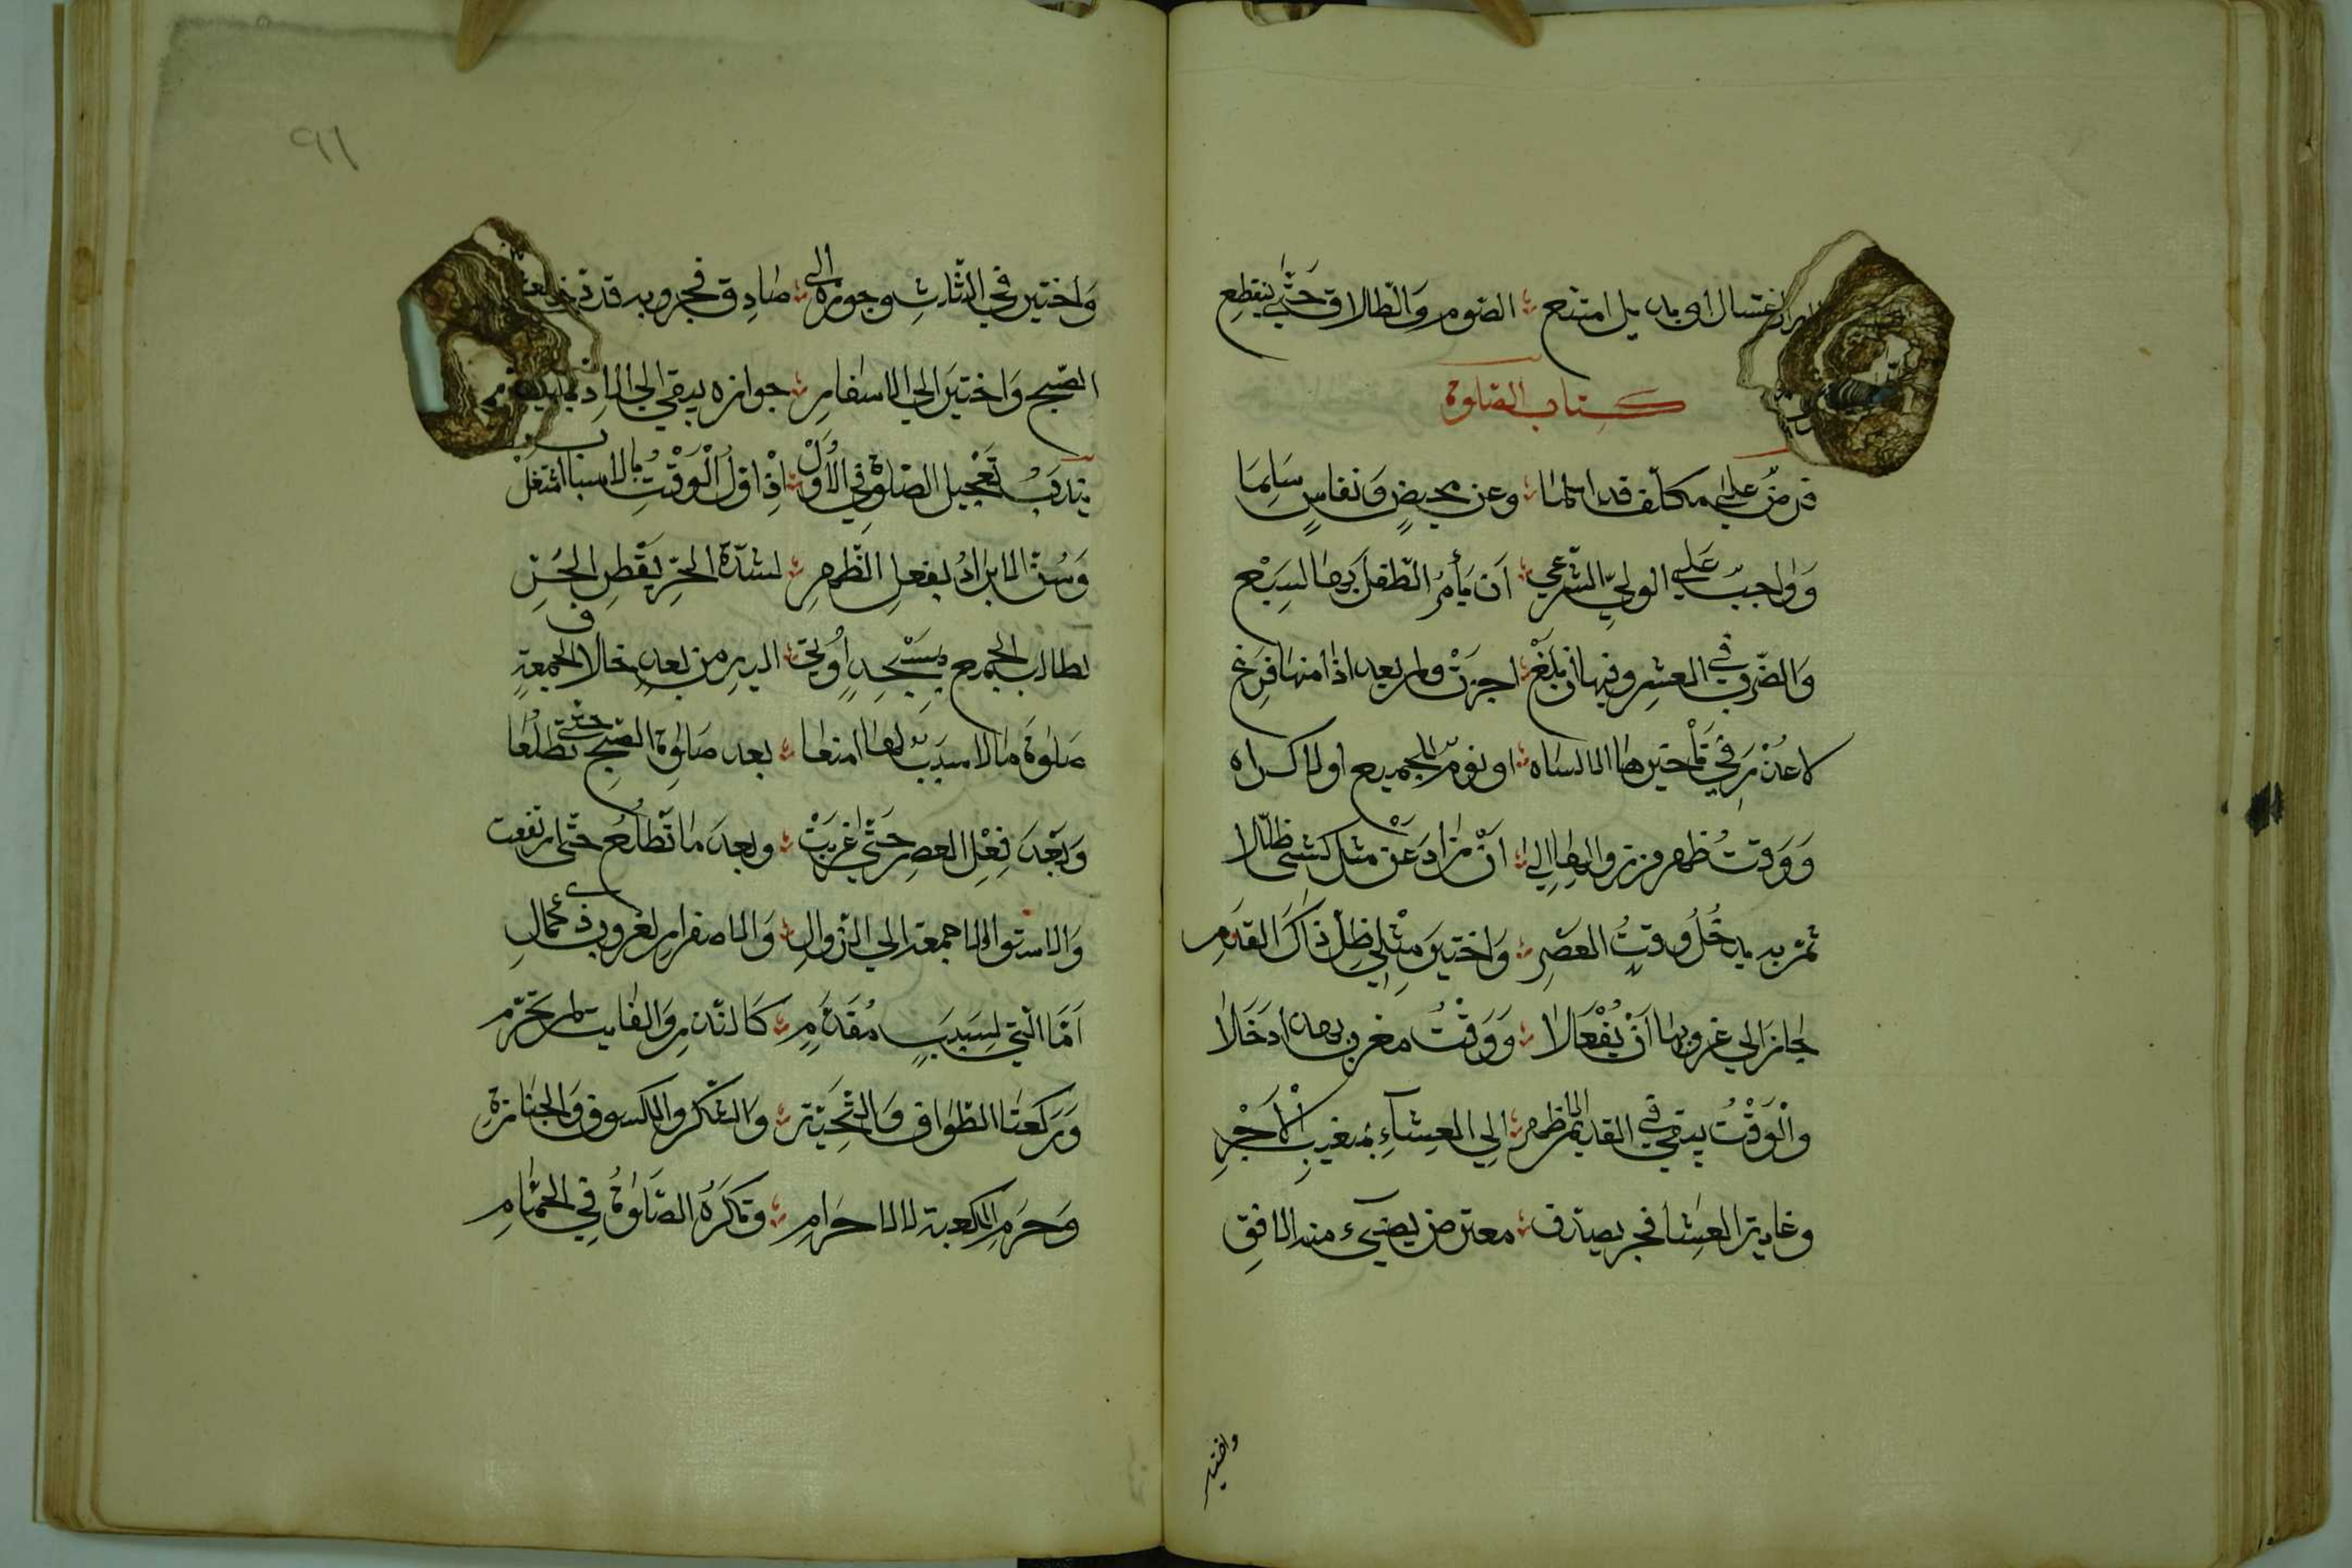 اغتسال او بديل امتنع ؞ الصوم والطلاق حتى ينقطع
كتاب الصلوة
فرض على مكلف قد اسلما ؞ وعن محيض ونفاس سلما
وواجب على الولي الشرعي ؞ أن يأمر الطفل بها لسبع
والضرب في العشر وفيها ان بلغ ؞ اجزت ولم يعد اذا منها فرغ
لا عذر في تأخيرها الا لساه ؞ او نوم او للجميع او لاكراه
ووقت ظهر من زوالها إلى ؞ ان زاد عن مثل كشئ ظللا
ثم به يدخل وقت العصر ؞ واختير مثلي ظل ذاك القدر
جاز الى غروبها أن يفعلا ؞ ووقت مغرب بهذا دخلا
والوقت يبقى في القديم الاظهر ؞ الى العشاء بمغيب الأحمر
وغاية العشا فجر يصدق ؞ معترض يضيء منه الافق
واختير
٩١
واختير في الثلث وجوزه الى ؞ صادق فجر وبه قد دخلا
الصبح واختير الى الاسفار ؞ جوازه يبقى الى
يندب تعجيل الصلوة في الأول ؞ اذ اول الوقت بالاسباب اشتغل
وسن الابراد بفعل الظهر ؞ لشدة الحر بقطر الحر
لطالب الجمع بمسجد أوتي ؞ اليه من بعد خلاف الجمعة
صلوة ما لا سبب لها امنعا ؞ بعد صلوة الصبح حتى تطلعا
وبعد فعل العصر حتى غربت ؞ وبعد ما تطلع حتى ارتفعت
والاستوا لا جمعة الى الزوال ؞ والاصفرار لغروب ذي كمال
أما التي لسبب مقدم ؞ كالنذر والفايت لم تحرم
وركعتا الطواف والتحية ؞ والشكر والكسوف والجنازة
وحرم الكعبة لا الاحرام ؞ وتكره الصلوة في الحمام